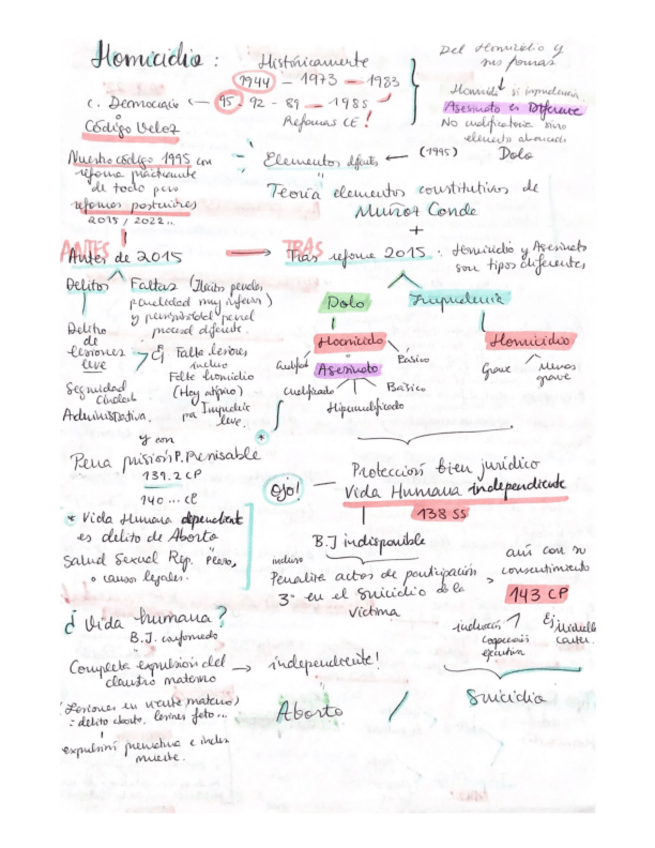 Homicidio :
Históricamente
1944 - 1973 - 1983
c. Democracia ← 95 . 92 - 89 - 1985
Código Veloz
Reformas CE !
Del Homicidio y
sus formas
Homicidio imprudencia
Asesinato es Diferente
No cualificatoria sino
elemento
Dolo
Nuestro código 1995 con
reforma prácticamente
de todo pero
reformas posteriores
2015 / 2022 ..
Elementos ← (1995)
Teoría elementos constitutivos de
Muñoz Conde
+
ANTES
Antes de 2015
TRAS
Tras reforma 2015 : Homicidio y Asesinato
son tipos diferentes
Delitos
Faltas (Ilícitos penales
penalidad muy inferior)
y penal
procesal diferente.
Delito
de
lesiones
leve
Ej Falta lesiones,
incluso
Falta homicidio
(Hoy atípico)
Imprudencia
leve.
Seguridad
Ciudad.
Administrativa.
Dolo
Imprudencia
Homicidio
Básico
Asesinato
Cualificado
Básico
Hipercualificado
Homicidio
Grave
Menos
grave
y con
*
Pena prisión P. Revisable
139.2 CP
140 ... CP
Ojo! — Protección bien jurídico
Vida Humana independiente
138 SS
* Vida Humana dependiente
es delito de Aborto
Salud Sexual Rep.
o causas legales.
B.J indisponible
incluso
Penaliza actos de participación
3º en el suicidio de la
víctima
aún con su
consentimiento
143 CP
inducción
cooperación
ejecutiva
¿ Vida humana?
B.J.
Completa expulsión del
claustro materno
→ independiente!
(Lesiones en vientre materno)
= delito aborto, lesiones feto ...
expulsión prematura e incluso
muerte.
Aborto / Suicidio